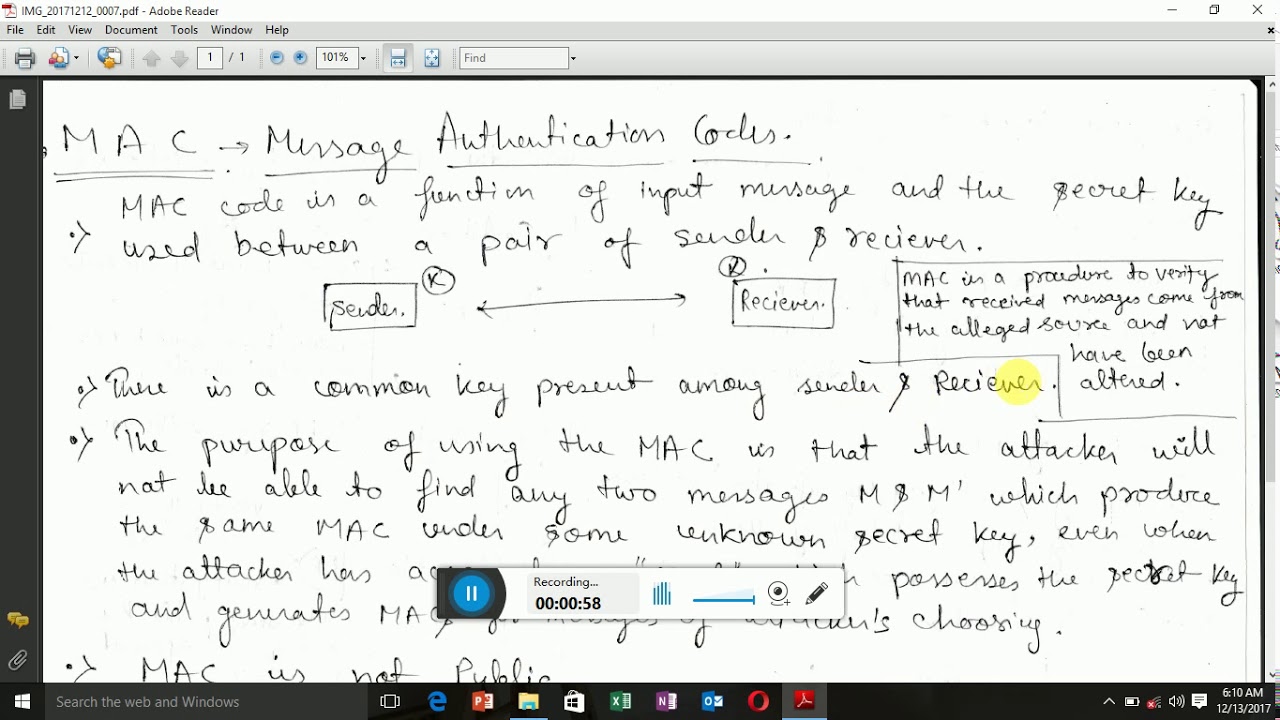 IMG_20171212_0007.pdf - Adobe Reader
File Edit View Document Tools Window Help
1 / 1 101% Find
MAC → Message Authentication Codes.
MAC code is a function of input message and the secret key
used between a pair of sender & reciever.
K K
Sender. Reciever.
MAC is a procedure to verify
that received messages come from
the alleged source and not
have been
altered.
There is a common key present among sender & Reciever.
The purpose of using the MAC is that the attacker will
not be able to find any two messages M & M' which produce
the same MAC under some unknown secret key, even when
the attacker has possesses the secret key
and generates MAC's choosing.
MAC is not Public
Recording...
00:00:58
Search the web and Windows
6:10 AM
12/13/2017